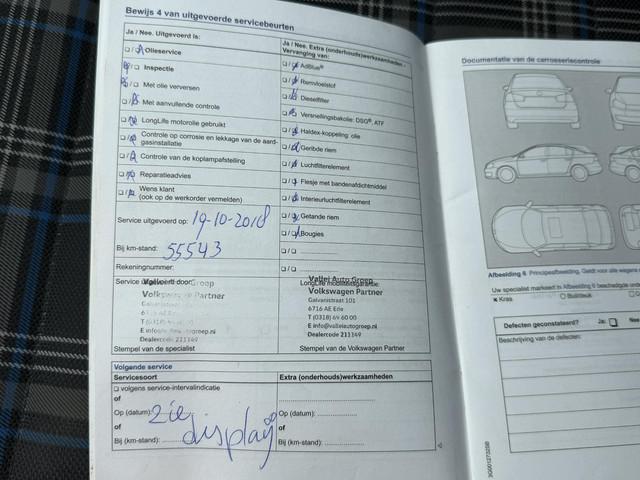 Bewijs 4 van uitgevoerde servicebeurten
Ja / Nee. Uitgevoerd is:
Olieservice
Inspectie
Met olie verversen
Met aanvullende controle
LongLife motorolie gebruikt
Controle op corrosie en lekkage van de aard-
gasinstallatie
Controle van de koplampafstelling
Reparatieadvies
Wens klant
(ook op de werkorder vermelden)
Service uitgevoerd op: 19-10-2018
Bij km-stand: 55543
Rekeningnummer:
Service uitgevoerd door:
Volkswagen Partner
Dealercode 211149
Stempel van de specialist
Ja / Nee. Extra (onderhouds)werkzaamheden
Vervanging van:
AdBlue®
Remvloeistof
Dieselfilter
Versnellingsbakolie: DSG®, ATF
Haldex-koppeling: olie
Geribde riem
Luchtfilterelement
Flesje met bandenafdichtmiddel
Interieurluchtfilterelement
Getande riem
Bougies
LongLife mobiliteitsgarantie
Vallei Auto Groep
Volkswagen Partner
Galvanistraat 101
6716 AE Ede
T (0318) 64 60 00
E info@valleiautogroep.nl
Dealercode 211149
Stempel van de Volkswagen Partner
Volgende service
Servicesoort
volgens service-intervalindicatie
of
Op (datum): zie
of
Bij (km-stand): display
Extra (onderhouds)werkzaamheden
Op (datum):
of
Bij (km-stand):
Documentatie van de carrosseriecontrole
Afbeelding 6 Principeafbeelding. Geldt voor alle wagens
Uw specialist markeert in Afbeelding 6 beschadigde
Kras
Defecten geconstateerd? Ja: Nee
Beschrijving van de defecten: